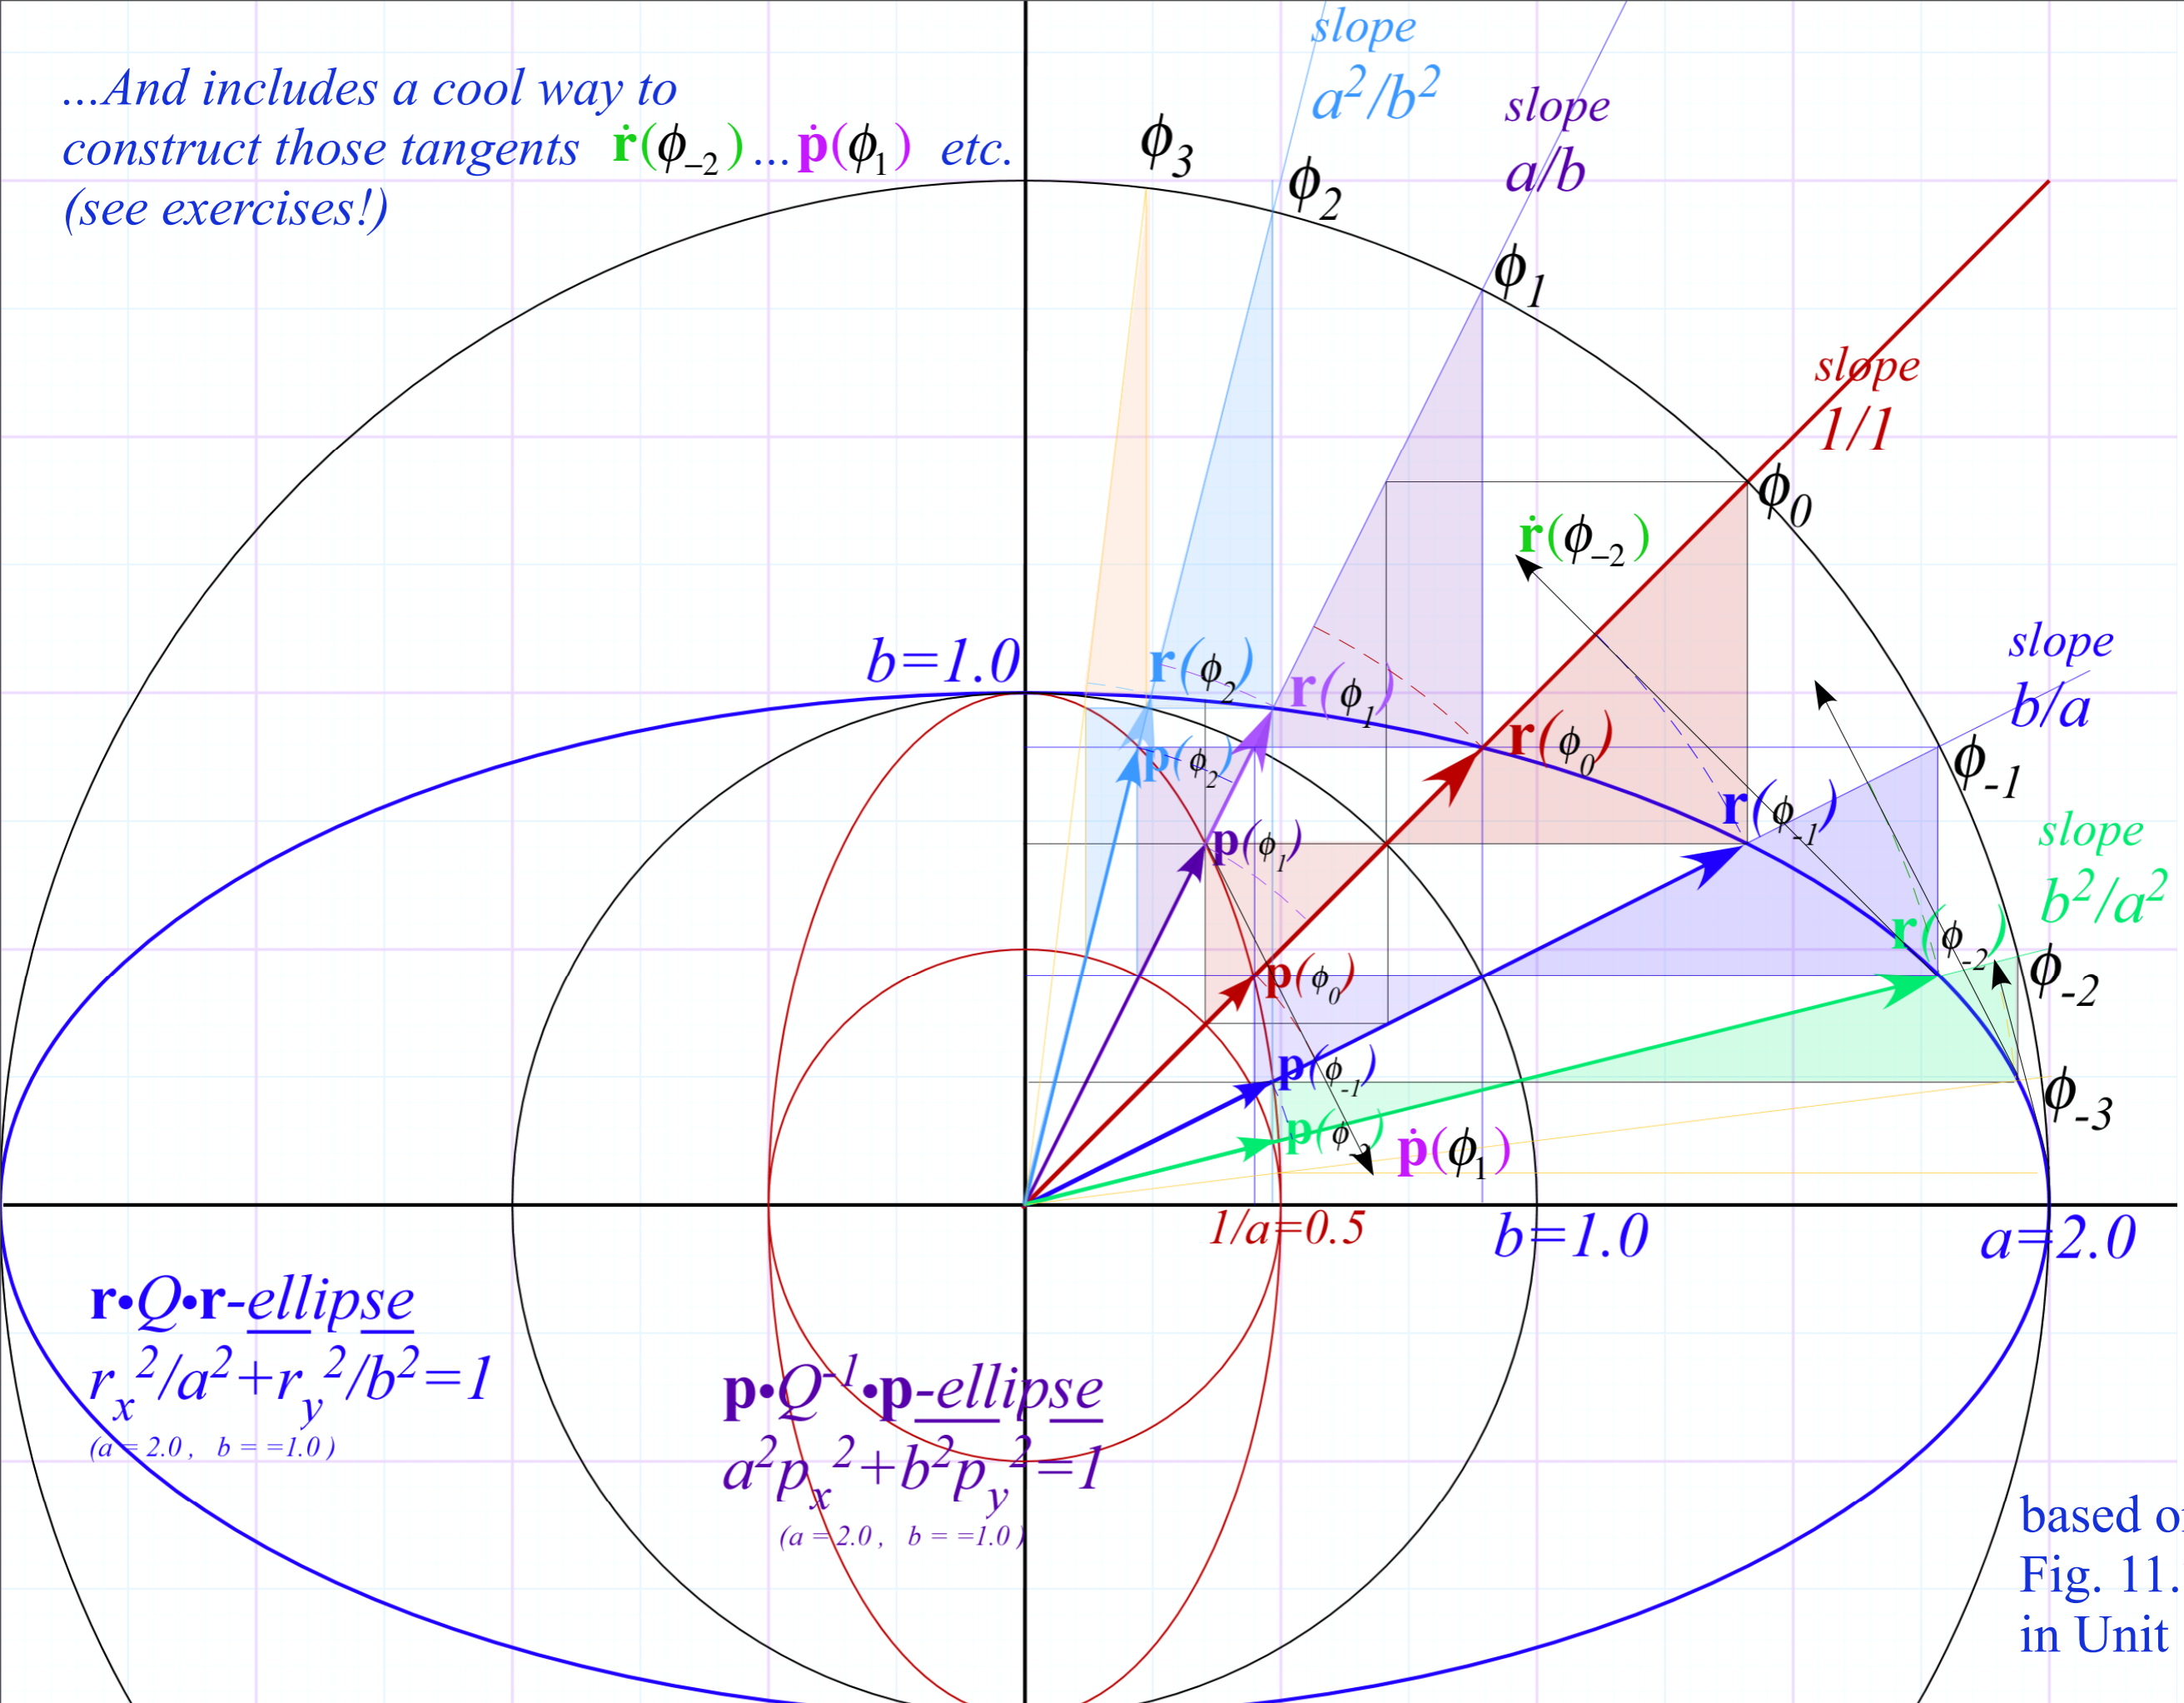 ...And includes a cool way to
construct those tangents ṙ(ϕ₋₂)...ṗ(ϕ₁) etc.
(see exercises!)
slope
a²/b²
slope
a/b
ϕ₃
ϕ₂
ϕ₁
slope
1/1
ϕ₀
ṙ(ϕ₋₂)
slope
b/a
b=1.0
r(ϕ₂)
r(ϕ₁)
r(ϕ₀)
ϕ₋₁
p(ϕ₂)
r(ϕ₋₁)
slope
b²/a²
p(ϕ₁)
r(ϕ₋₂)
ϕ₋₂
p(ϕ₀)
p(ϕ₋₁)
ϕ₋₃
p(ϕ₋₂)
ṗ(ϕ₁)
1/a=0.5
b=1.0
a=2.0
r•Q•r-ellipse
rₓ²/a²+r_y²/b²=1
(a = 2.0 , b = =1.0 )
p•Q⁻¹•p-ellipse
a²pₓ²+b²p_y²=1
(a = 2.0 , b = =1.0 )
based
Fig. 11.
in Unit